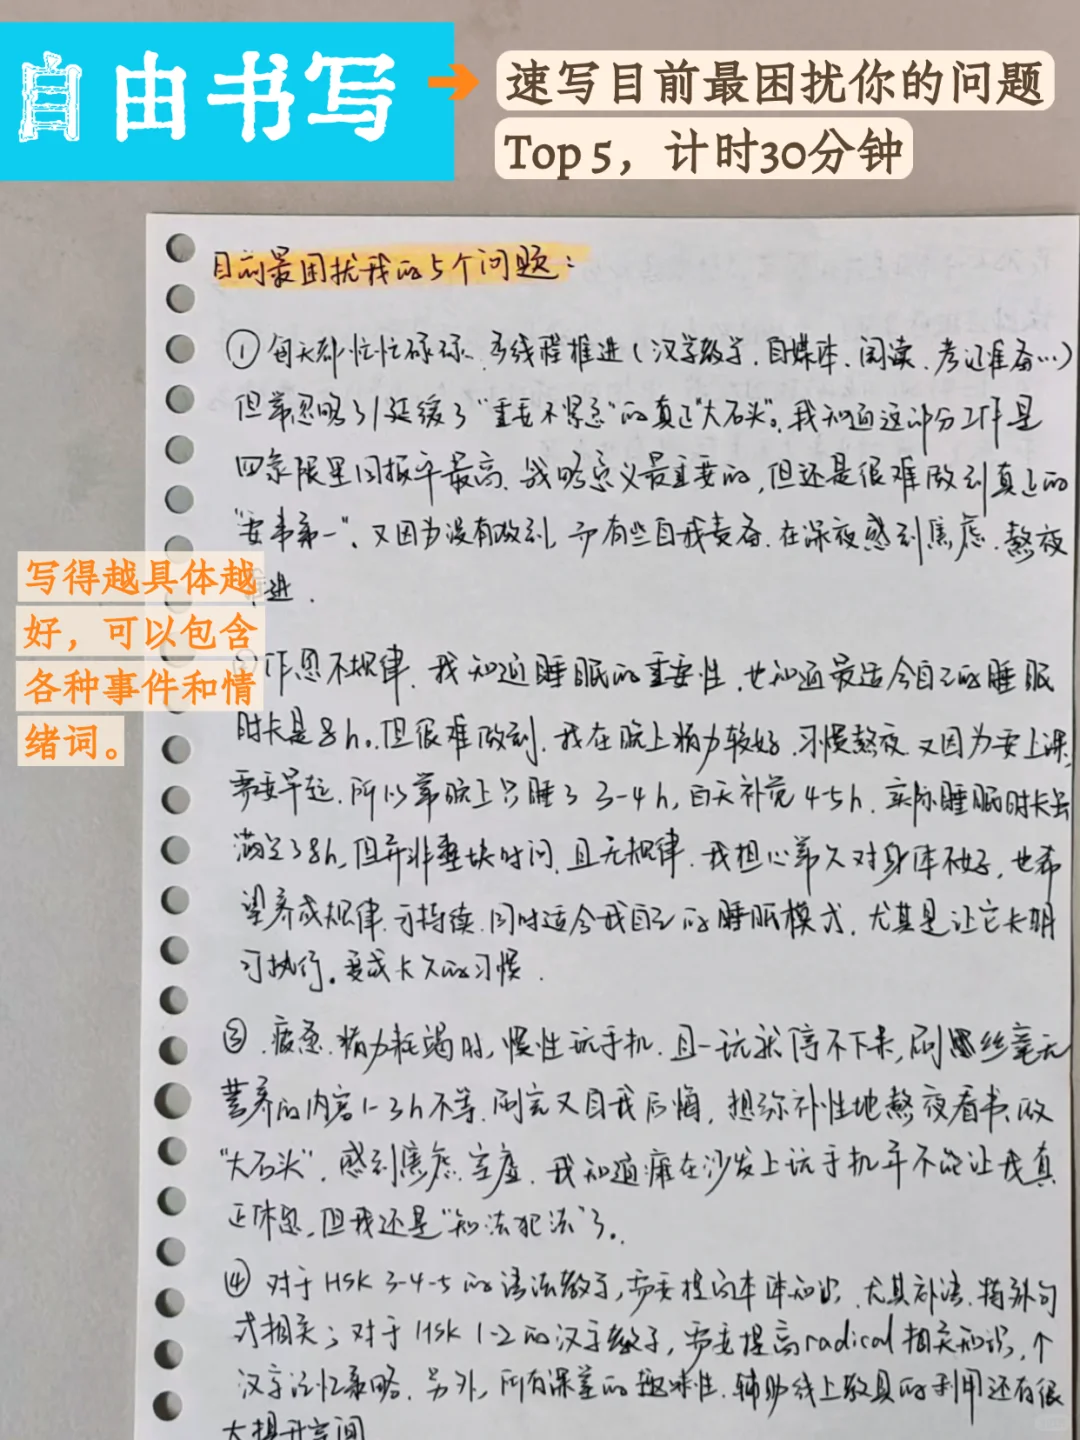 自由书写
速写目前最困扰你的问题
Top 5，计时30分钟
目前最困扰我的5个问题：
①每天都忙忙碌碌、多线程推进（汉字教学、自媒体、阅读、考证准备…）
但常忽略了/延缓了“重要不紧急”的真正“大石头”。我知道这部分工作是
四象限里回报率最高、战略意义最重要的，但还是很难做到真正的
“要事第一”，又因为没有做到，而有些自我责备，在深夜感到焦虑，熬夜
进．
写得越具体越
好，可以包含
各种事件和情
绪词。
作息不规律，我知道睡眠的重要性，也知道最适合自己的睡眠
时长是8h。但很难做到，我在晚上精力较好，习惯熬夜，又因为要上课，
需要早起，所以常晚上只睡了3-4h，白天补觉4-5h，实际睡眠时长虽
满足了8h，但并非整块时间，且无规律，我担心常久对身体不好，也希
望养成规律、可持续、同时适合我自己的睡眠模式，尤其是让它长期
可执行。变成长久的习惯．
③．疲惫、精力耗竭时，惯性玩手机，且一玩就停不下来，刷丝毫无
营养的内容1-3h不等，刷完又自我后悔，想弥补性地熬夜看书、做
“大石头”，感到焦虑、空虚，我知道瘫在沙发上玩手机并不能让我真
正休息，但我还是“知法犯法”了。
④对于HSK 3-4-5的语法教学，需要提高本体知识，尤其补语、特殊句
式相关；对于HSK 1-2的汉字教学，需要提高radical相关知识，个
汉字记忆策略。另外，所有课堂的趣味性、辅助线上教具的利用还有很
大提升空间